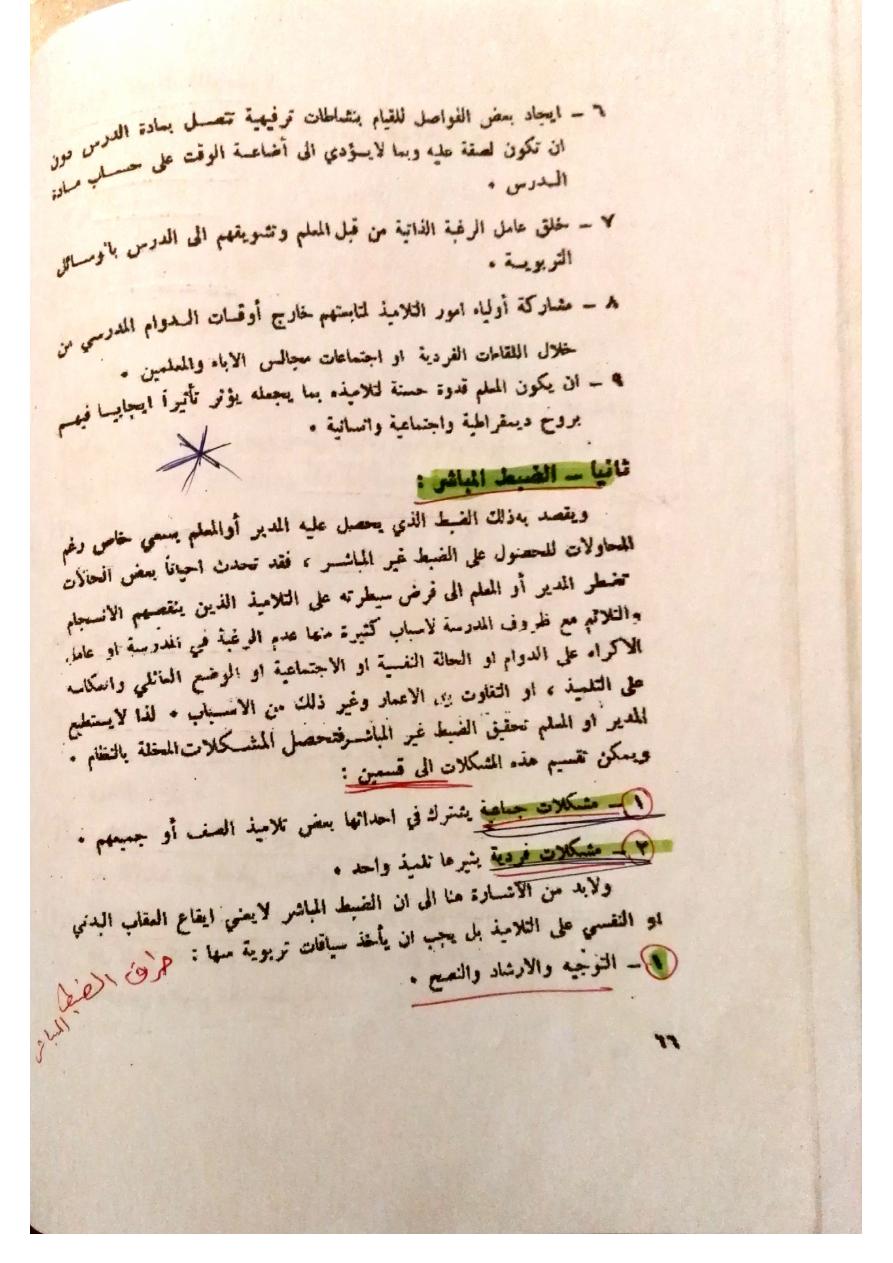 ٦ – ايجاد بعض الفواصل للقيام بنشاطات ترفيهية تتصل بمادة الدرس دون
ان تكون لصقة عليه وبما لايؤدي الى أضاعة الوقت على حساب مادة
الدرس ٠
٧ – خلق عامل الرغبة الذاتية من قبل المعلم وتشويقهم الى الدرس بالوسائل
التربوية ٠
٨ – مشاركة أولياء امور التلاميذ لمتابعتهم خارج أوقات الدوام المدرسي من
خلال اللقاءات الفردية او اجتماعات مجالس الاباء والمعلمين ٠
٩ – ان يكون المعلم قدوة حسنة لتلاميذه بما يجعله يؤثر تأثيراً ايجابيا فيهم
بروح ديمقراطية واجتماعية وانسانية ٠
ثانيا – الضبط المباشر :
ويقصد بذلك الضبط الذي يحصل عليه المدير أوالمعلم بسعي خاص رغم
المحاولات للحصول على الضبط غير المباشر ، فقد تحدث احياناً بعض الحالات
تضطر المدير أو المعلم الى فرض سيطرته على التلاميذ الذين ينقصهم الانسجام
والتلائم مع ظروف المدرسة لاسباب كثيرة منها عدم الرغبة في المدرسة او عامل
الاكراه على الدوام او الحالة النفسية او الاجتماعية او الوضع العائلي وانعكاسه
على التلميذ ، او التفاوت في الاعمار وغير ذلك من الاسباب ٠ لذا لايستطيع
المدير او المعلم تحقيق الضبط غير المباشر فتحصل المشكلات المخلة بالنظام ٠
ويمكن تقسيم هذه المشكلات الى قسمين :
١ – مشكلات جماعية يشترك في احداثها بعض تلاميذ الصف أو جميعهم ٠
٢ – مشكلات فردية يثيرها تلميذ واحد ٠
ولابد من الأشارة هنا الى ان الضبط المباشر لايعني ايقاع العقاب البدني
او النفسي على التلاميذ بل يجب ان يأخذ سياقات تربوية منها :
١ – التوجيه والارشاد والنصح ٠
طرق الضبط
المباشر
٦٦